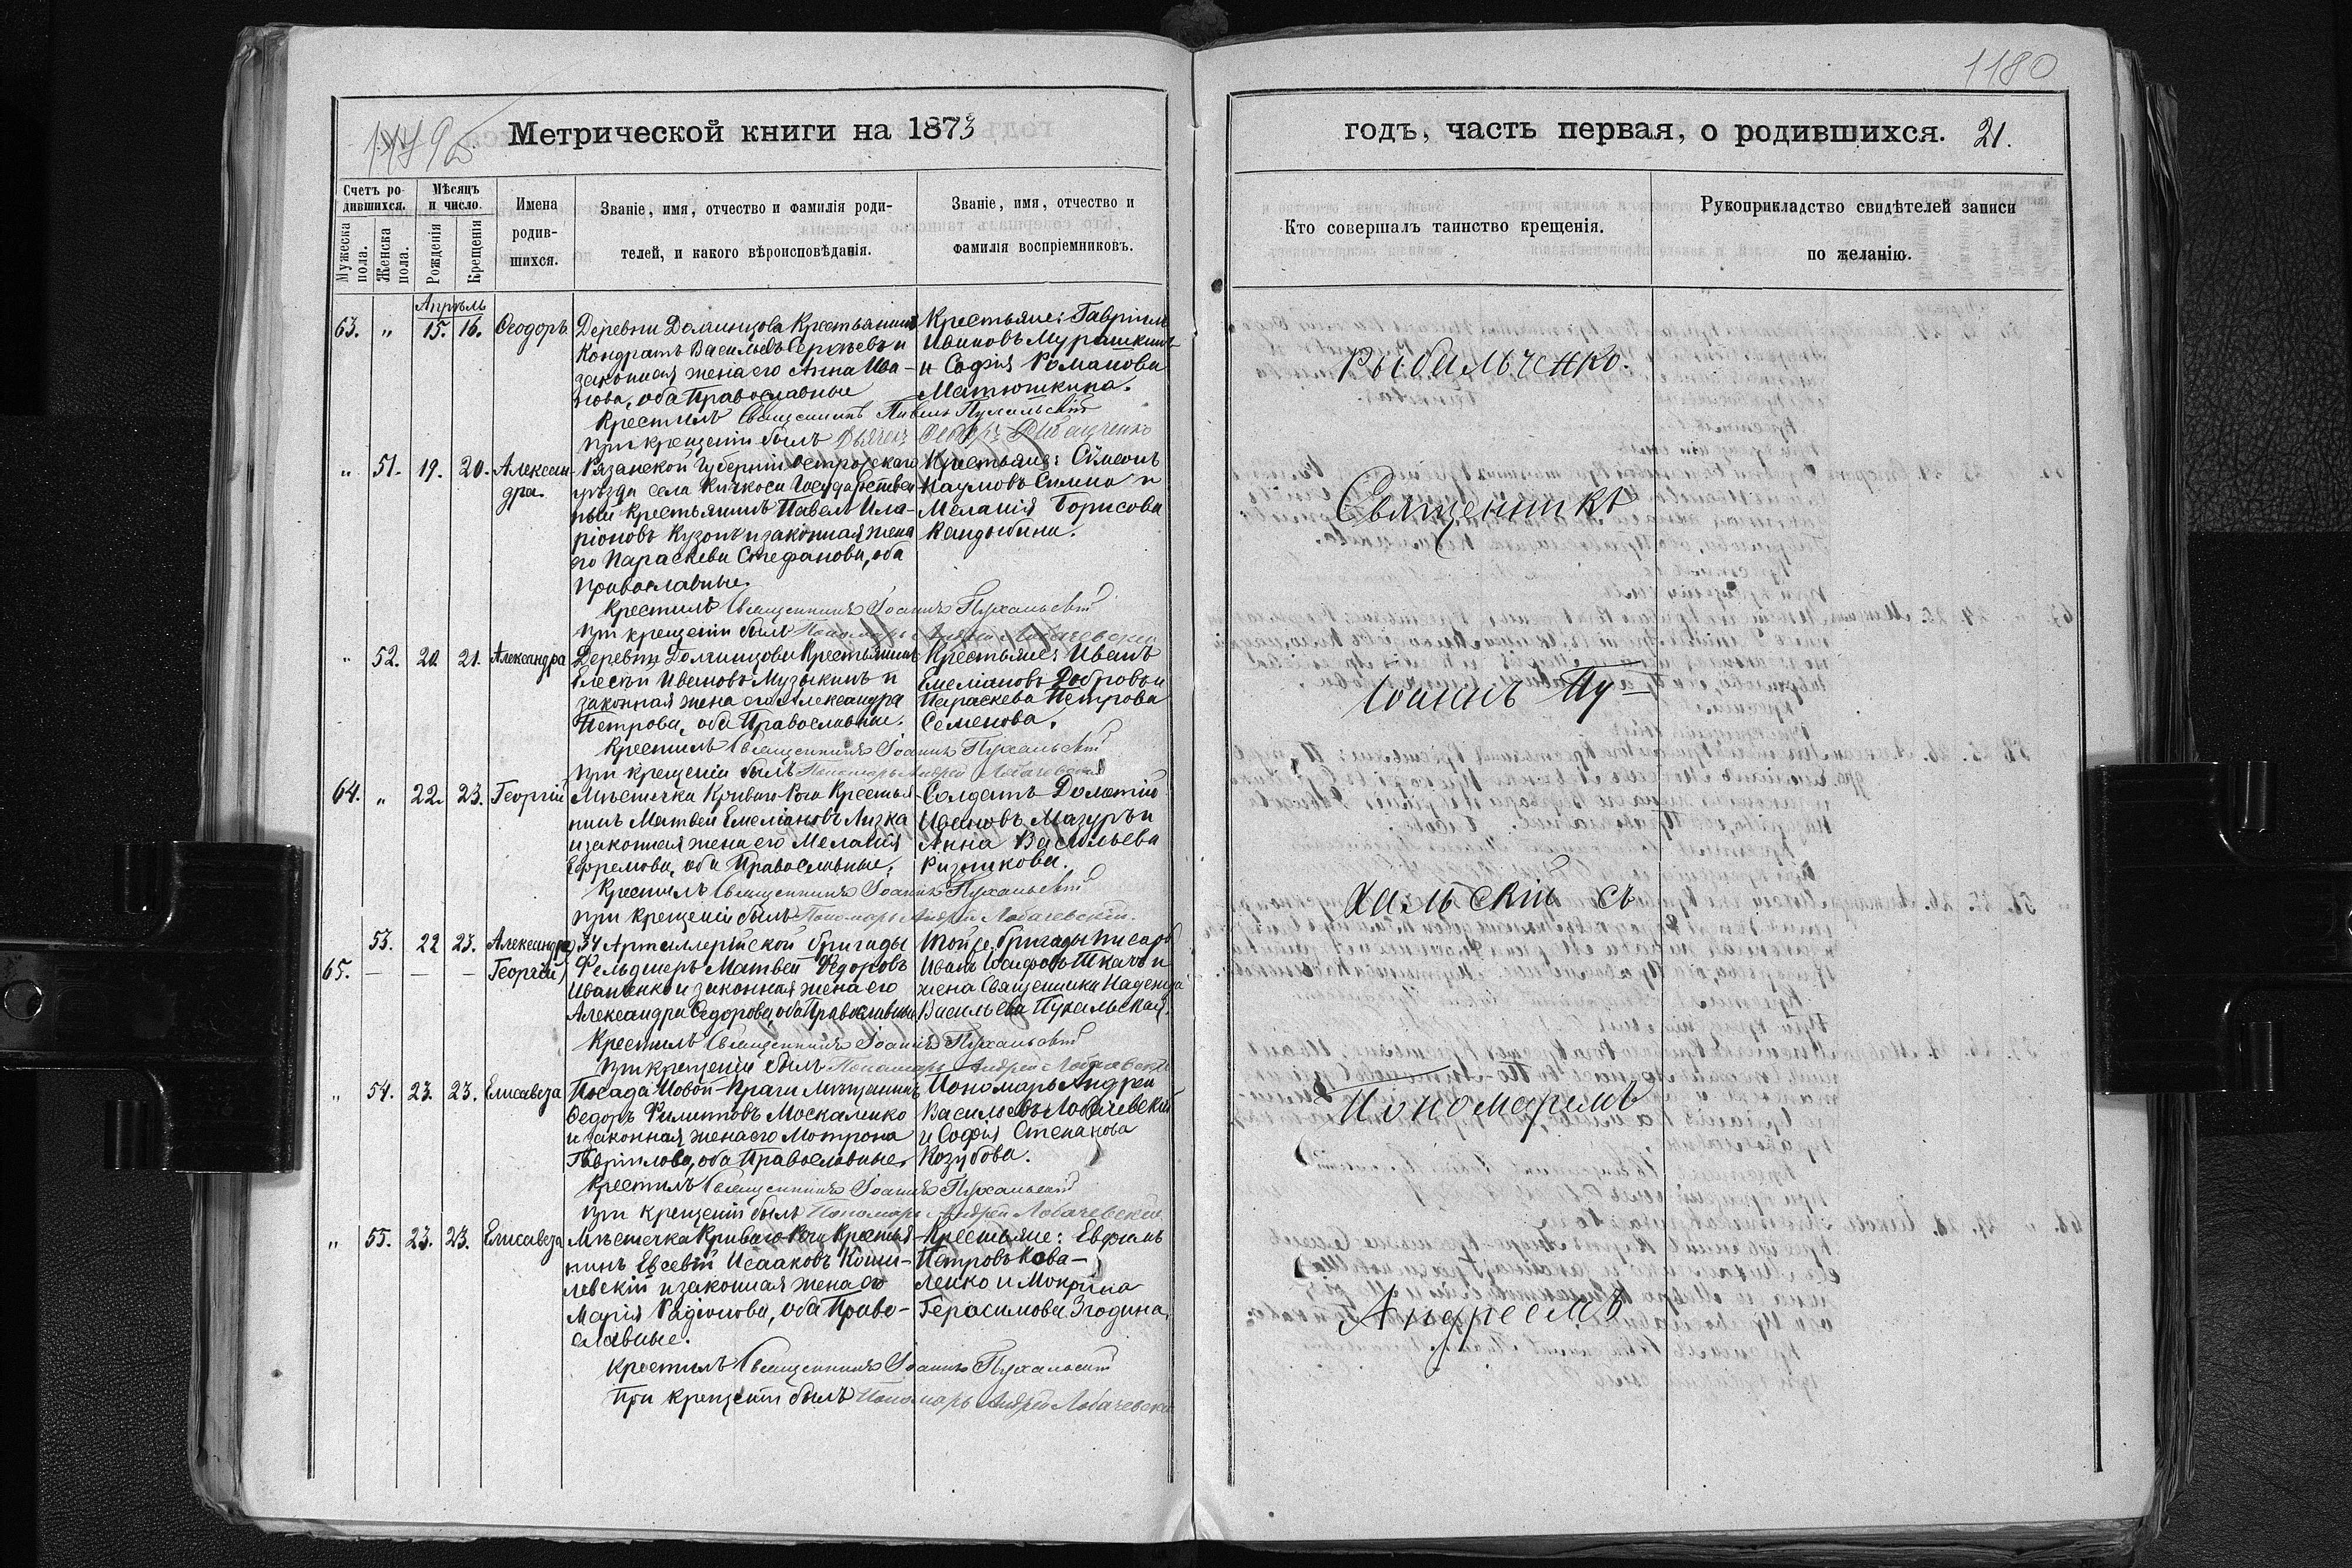 1180
Метрической книги на 1873
годъ, часть первая, о родившихся. 21.
Счетъ ро-
дившихся.
Мужеска пола.
Женска пола.
Мѣсяцъ
и число.
Рожденія
Крещенія
Имена
родив-
шихся.
Званіе, имя, отчество и фамилія роди-
телей, и какого вѣроисповѣданія.
Званіе, имя, отчество и
фамилія воспріемниковъ.
Кто совершалъ таинство крещенія.
Рукоприкладство свидѣтелей записи
по желанію.
Апрѣль
63. „ 15. 16. Ѳеодоръ
Деревни Долгинцова Крестьянинъ
Кондратъ Васильевъ Сергѣевъ и
законная жена его Анна Ива-
нова, оба Православные
Крестьяне: Гавріилъ
Ивановъ Мурашкинъ
и Софія Романова
Матюшкина.
Крестилъ Священникъ Павелъ Пухальскій
При крещеніи былъ Дьячекъ
„ 51. 19. 20. Алексан-
дра.
Рязанской Губерніи
уѣзда села Государствен
ный Крестьянинъ Павелъ Ила-
ріоновъ Кузонъ и законная жена
его Параскева Стефанова, оба
Православные.
Крестьяне: Сѵмеонъ
Наумовъ и
Меланія Борисова
Кандыбина.
Крестилъ Священникъ Іоаннъ Пухальскій
При крещеніи былъ Пономарь Андрей Лобачевскій
„ 52. 20. 21. Александра
Деревни Долгинцовы Крестьянинъ
Елесѣй Ивановъ Музыкинъ и
законная жена его Александра
Петрова, оба Православные.
Крестьяне: Иванъ
Емеліановъ Добровъ и
Параскева Петрова
Семенова.
Крестилъ Священникъ Іоаннъ Пухальскій
При крещеніи былъ Пономарь Андрей Лобачевскій
64. „ 22. 23. Георгій
Мѣстечка Криваго Рога Крестья-
нинъ Матвей Емеліановъ Лизка
и законная жена его Меланія
Ефремова, оба Православные.
Солдатъ Доментій
Ивановъ Мазуръ и
Анна Васильева
Ризникова.
Крестилъ Священникъ Іоаннъ Пухальскій
При крещеніи былъ Пономарь Андрей Лобачевскій.
53. 22 23. Александра
65. — — — Георгій
34 Артиллерійской бригады
Фельдшеръ Матвей Ѳедоровъ
Иваненко и законная жена его
Александра Ѳедорова, оба Православные
Той же бригады писарь
Иванъ Іосифовъ Ткачъ и
жена Священника Надежда
Васильева Пухальская.
Крестилъ Священникъ Іоаннъ Пухальскій
При крещеніи былъ Пономарь Андрей Лобачевскій
„ 54. 23. 23. Елисавета
Посада Новой-Праги Мѣщанинъ
Ѳедоръ Филиповъ Москаленко
и законная жена его Мотрона
Гавріилова, оба Православные.
Пономарь Андрей
Васильевъ Лобачевскій
и Софія Степанова
Козубова.
Крестилъ Священникъ Іоаннъ Пухальскій
При крещеніи былъ Пономарь Андрей Лобачевскій
„ 55. 23. 23. Елисавета
Мѣстечка Криваго-Рога Крестья-
нинъ Евсевій Исааковъ Коши-
левскій и законная жена его
Марія Родіонова, оба Право-
славные.
Крестьяне: Евфимъ
Петровъ Кова-
ленко и Мокрина
Герасимова Згодина.
Крестилъ Священникъ Іоаннъ Пухальскій
При крещеніи былъ Пономарь Андрей Лобачевскій
Рыбальченко.
Священникъ
Іоаннъ Пу-
хальскій съ
Пономаремъ
Андреемъ